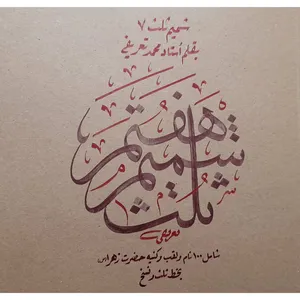 شمیم ثلث ۷
بقلم استاد محمد تعریفی
هفتم
شمیم
ثلث
شامل ۱۰۰ نام و لقب و کنیه حضرت زهرا س
بخط ثلث و نسخ